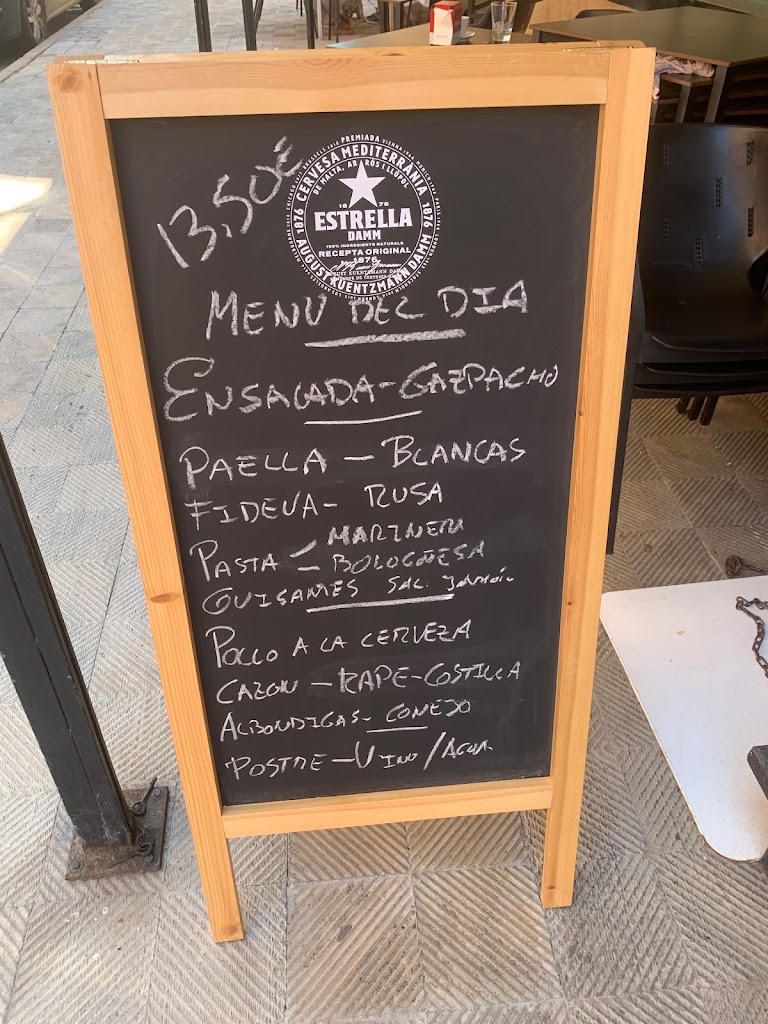 13,50€
PREMIADA
CERVESA MEDITERRÀNIA
DE MALTA, ARRÒS I LLÚPOL
1876
1876
1876
ESTRELLA
DAMM
100% INGREDIENTS NATURALS
RECEPTA ORIGINAL
1876
AUGUST KUENTZMANN DAMM
MENU DEL DIA
ENSALADA-GAZPACHO
PAELLA - BLANCAS
FIDEUA- RUSA
MARINERA
PASTA - BOLOGÑESA
GUISANTES SAL. JAMÓN
POLLO A LA CERVEZA
CAZON - RAPE-COSTILLA
ALBONDIGAS- CONEJO
POSTRE-VINO/AGUA